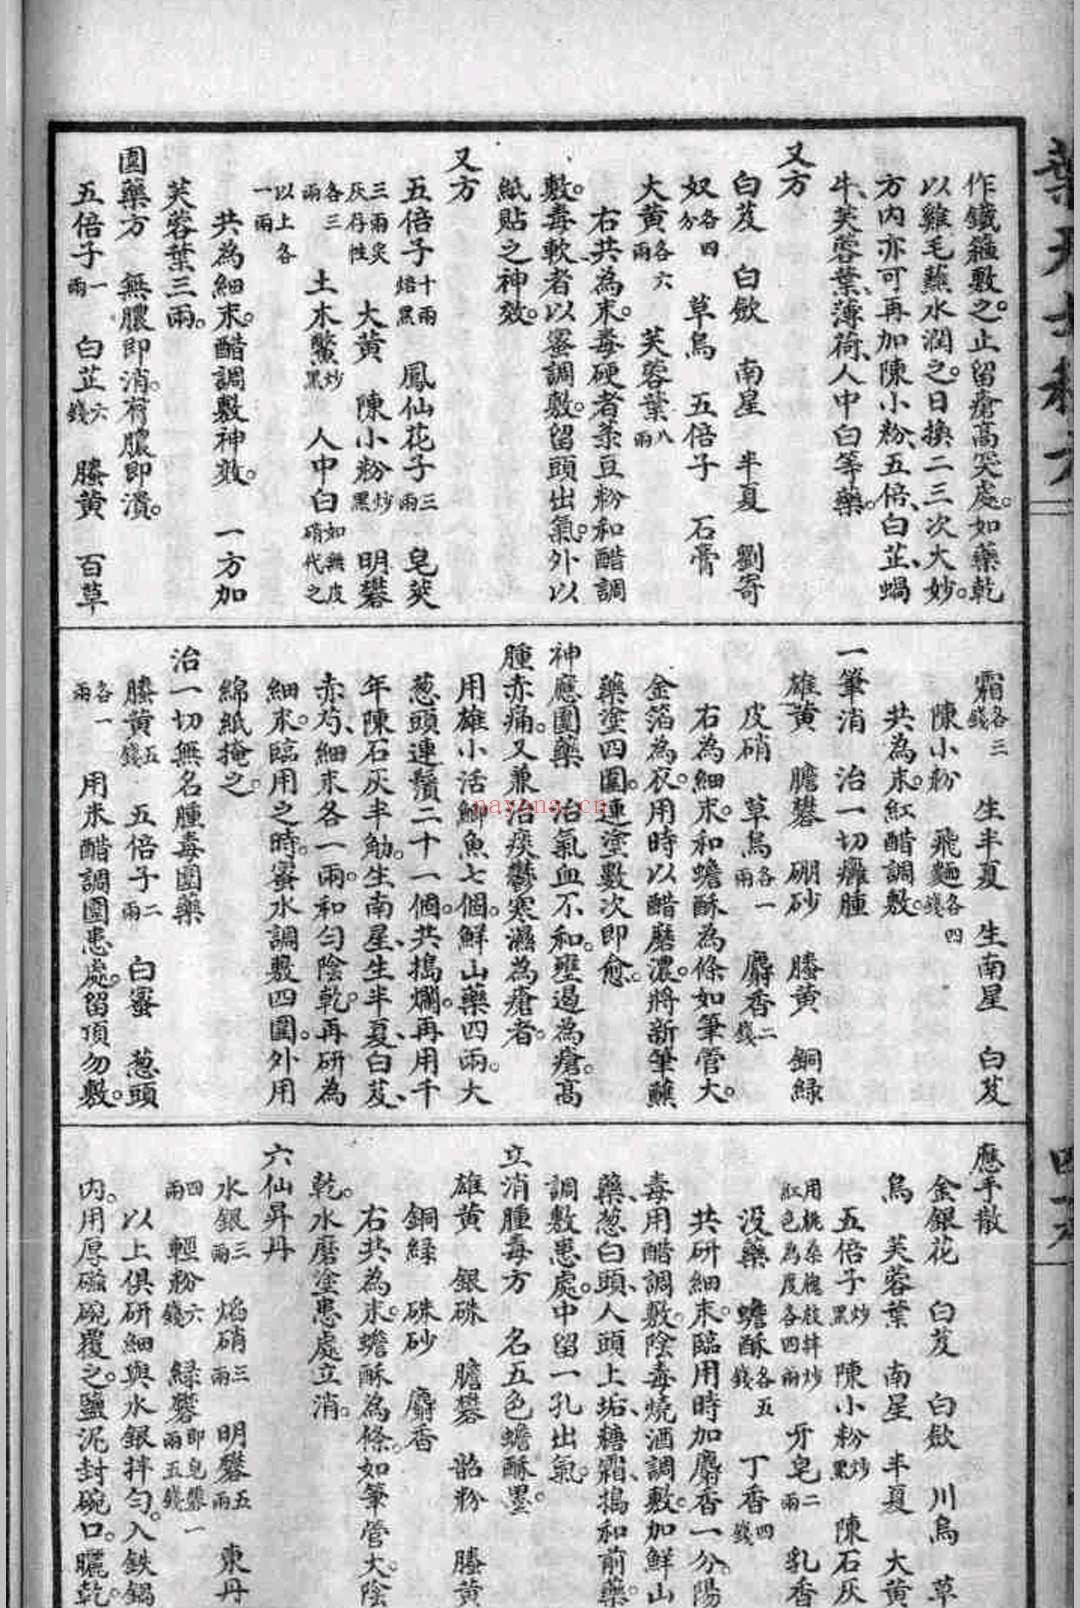 作鐵箍敷之。止留瘡高哭處。如藥乾
以雞毛蘸水潤之。日換二三次大妙。
方內亦可再加陳小粉、五倍、白芷、蝸
牛、芙蓉葉、薄荷、人中白等藥。
又方
白芨　白歛　南星　半夏　劉寄
奴各四分　草烏　五倍子　石膏
大黃各六兩　芙蓉葉八兩
右共為末。毒硬者菉豆粉和醋調
敷。毒軟者以蜜調敷。留頭出氣。外以
紙貼之神效。
又方
五倍子十兩焙黑　鳳仙花子三兩　皂莢
三兩炙灰存性　大黃　陳小粉炒黑　明礬
各三兩　土木鱉炒黑　人中白如無皮硝代之
以上各一兩
共為細末。醋調敷神效。　一方加
芙蓉葉三兩。
圍藥方　無膿即消。有膿即潰。
五倍子一兩　白芷六錢　籐黃　百草
霜各三錢　生半夏　生南星　白芨
陳小粉　飛麵各四錢
共為末。紅醋調敷。
一筆消　治一切癰腫
雄黃　膽礬　硼砂　籐黃　銅綠
皮硝　草烏各一兩　麝香二錢
右為細末。和蟾酥為條如筆管大。
金箔為衣。用時以醋磨濃。將新筆蘸
藥塗四圍。連塗數次即愈。
神應圍藥　治氣血不和。壅遏為瘡。高
腫赤痛。又兼治痰鬱寒濕為瘡者。
用雄小活鯽魚七個。鮮山藥四兩。大
葱頭連鬚二十一個。共搗爛。再用千
年陳石灰半觔。生南星、生半夏、白芨、
赤芍、細末各一兩。和勻陰乾。再研為
細末。臨用之時。蜜水調敷四圍。外用
綿紙掩之。
治一切無名腫毒圍藥
籐黃五錢　五倍子二兩　白蜜　葱頭
各一兩　用米醋調圍患處。留頂勿敷。
應手散
金銀花　白芨　白歛　川烏　草
烏　芙蓉葉　南星　半夏　大黃
五倍子炒黑　陳小粉炒黑　陳石灰
用桃桑槐枝拌炒紅色為度各四兩　牙皂二兩　乳香
没藥　蟾酥各五錢　丁香四錢
共研細末。臨用時加麝香一分。陽
毒用醋調敷。陰毒燒酒調敷。加鮮山
藥、葱白頭、人頭上垢、糖霜、搗和前藥。
調敷患處。中留一孔出氣。
立消腫毒方　名五色蟾酥墨。
雄黃　銀硃　膽礬　韶粉　籐黃
銅綠　硃砂　麝香
右共為末。蟾酥為條。如筆管大。陰
乾。水磨塗患處立消。
六仙昇丹
水銀三兩　焰硝三兩　明礬五兩　東丹
四兩　輕粉六錢　綠礬即皂礬一兩五錢
以上俱研細與水銀拌勻。入鉄鍋
內。用厚磁碗覆之。鹽泥封碗口。曬乾。
nayona.cn